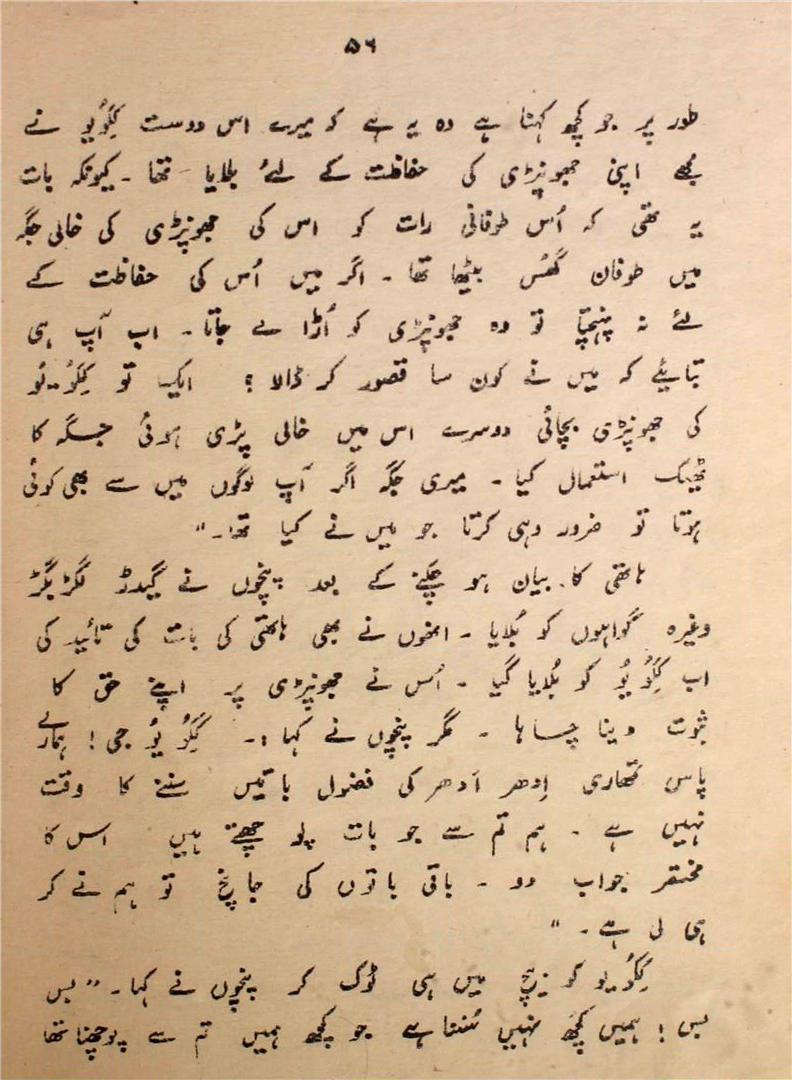 ۵۶
طور پر جو کچھ کہنا ہے وہ یہ ہے کہ میرے اس دوست کِکوُیوُ نے
مجھے اپنی جھونپڑی کی حفاظت کے لئے بلایا تھا ۔ کیونکہ بات
یہ تھی کہ اُس طوفانی رات کو اس کی جھونپڑی کی خالی جگہ
میں طوفان گھُس بیٹھا تھا ۔ اگر میں اُس کی حفاظت کے
لئے نہ پہنچتا تو وہ جھونپڑی کو اُڑا لے جاتا ۔ اب آپ ہی
بتایئے کہ میں نے کون سا قصور کر ڈالا ؟ ایک تو کِکوُیوُ
کی جھونپڑی بچائی دوسرے اس میں خالی پڑی ہوئی جگہ کا
ٹھیک استعمال کیا ۔ میری جگہ اگر آپ لوگوں میں سے بھی کوئی
ہوتا تو ضرور وہی کرتا جو میں نے کیا تھا ۔"
ہاتھی کا بیان ہو چکنے کے بعد پنچوں نے گیدڑ لگڑبگڑ
وغیرہ گواہوں کو بُلایا ۔ انھوں نے بھی ہاتھی کی بات کی تائید کی
اب کِکوُیوُ کو بُلایا گیا ۔ اُس نے جھونپڑی پر اپنے حق کا
ثبوت دینا چاہا ۔ مگر پنچوں نے کہا :۔ کِکوُیوُ جی ! ہمارے
پاس تمھاری اِدھر اُدھر کی فضول باتیں سننے کا وقت
نہیں ہے ۔ ہم تم سے جو بات پوچھتے ہیں اس کا
مختصر جواب دو ۔ باقی باتوں کی جانچ تو ہم نے کر
ہی لی ہے ۔"
کِکوُیو کو بیچ میں ہی ٹوک کر پنچوں نے کہا ۔ "بس
بس ! ہمیں کچھ نہیں سُننا ہے جو کچھ ہمیں تم سے پوچھنا تھا